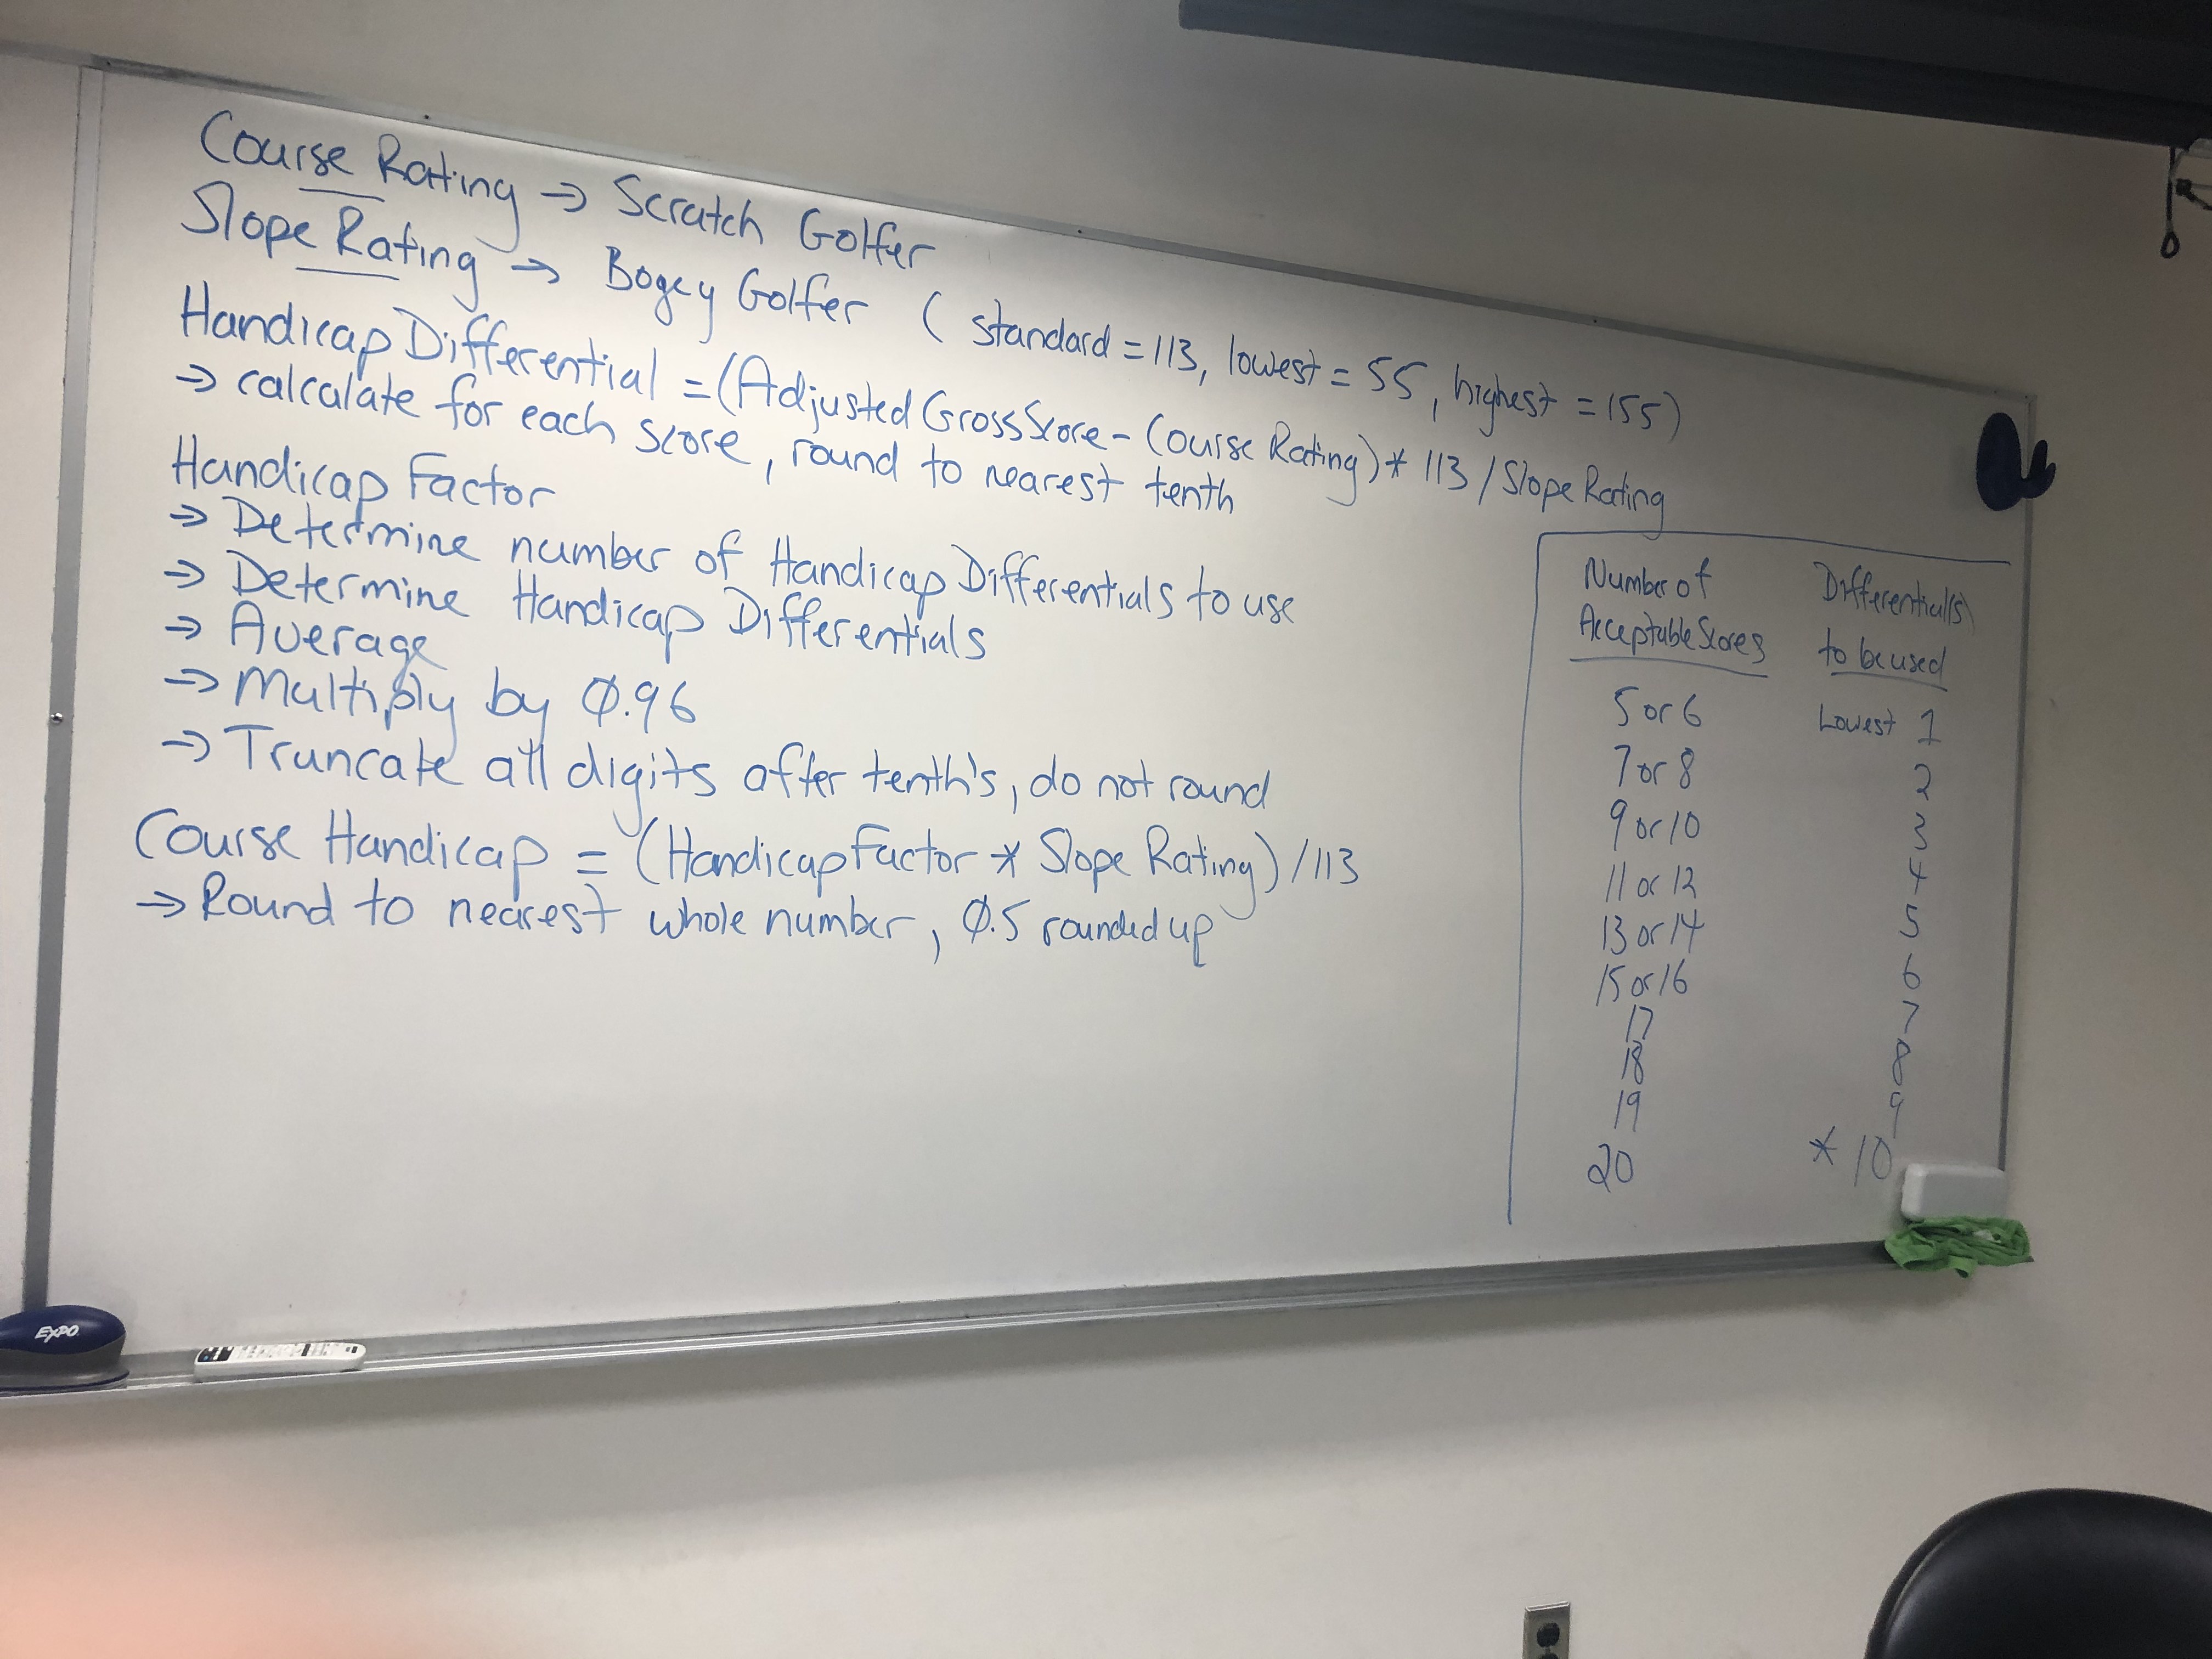 Course Rating → Scratch Golfer
Slope Rating → Bogey Golfer ( standard = 113, lowest = 55, highest = 155)
Handicap Differential = (Adjusted Gross Score - Course Rating) * 113 / Slope Rating
→ calculate for each score, round to nearest tenth
Handicap Factor
→ Determine number of Handicap Differentials to use
→ Determine Handicap Differentials
→ Average
→ Multiply by 0.96
→ Truncate all digits after tenth's, do not round
Course Handicap = (Handicap Factor * Slope Rating) / 113
→ Round to nearest whole number, 0.5 rounded up
Number of Differential(s)
Acceptable Scores to be used
5 or 6 Lowest 1
7 or 8 2
9 or 10 3
11 or 12 4
13 or 14 5
15 or 16 6
17 7
18 8
19 9
20 * 10
EXPO